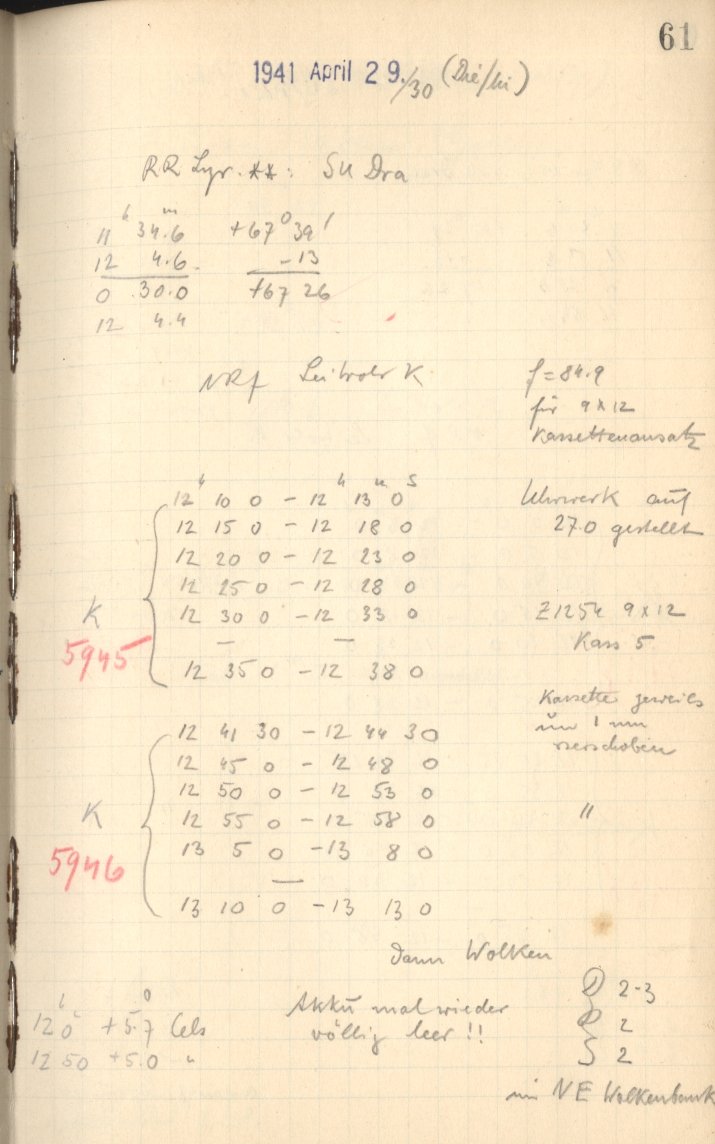 61
1941 April 29./30 (Die/Mi)
RR Lyr. **: SU Dra
11 h 34.6 m +67° 39'
12 4.6. -13
0 30.0 +67 26
12 4.4
NRf Leitrohr K f = 84.9
für 9 x 12
Kassettenansatz
12 h 10 0 - 12 h 13 m 0 s Uhrwerk auf
12 15 0 - 12 18 0 270 gestellt
12 20 0 - 12 23 0
12 25 0 - 12 28 0
K 12 30 0 - 12 33 0 Z1254 9 x 12
5945 — — Kass 5
12 35 0 - 12 38 0
Kassette jeweils
12 41 30 - 12 44 30 um 1 mm
12 45 0 - 12 48 0 verschoben
12 50 0 - 12 53 0
K 12 55 0 - 12 58 0 "
5946 13 5 0 - 13 8 0
—
13 10 0 - 13 13 0
dann Wolken
12 h 0 +5.7° Cels Akku mal wieder 2-3
12 50 +5.0 " völlig leer !! 2
2
im NE Wolkenbank